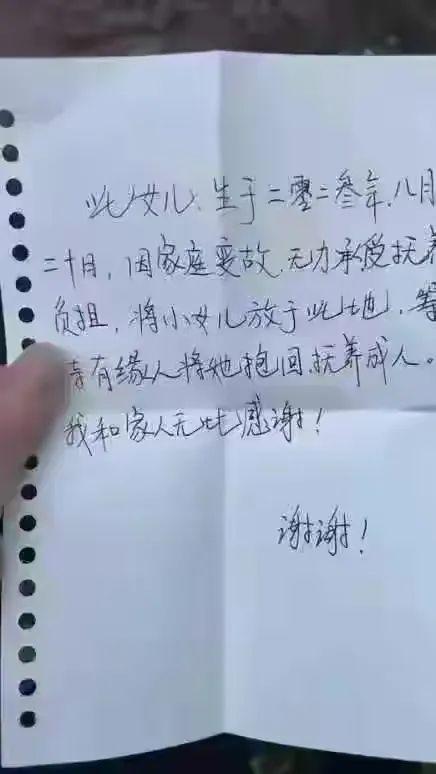 此女儿、生于二零二叁年、八月
二十日，因家庭变故，无力承受抚养
负担，将小女儿放于此地，等
待有缘人将她抱回，抚养成人。
我和家人无比感谢！
谢谢！